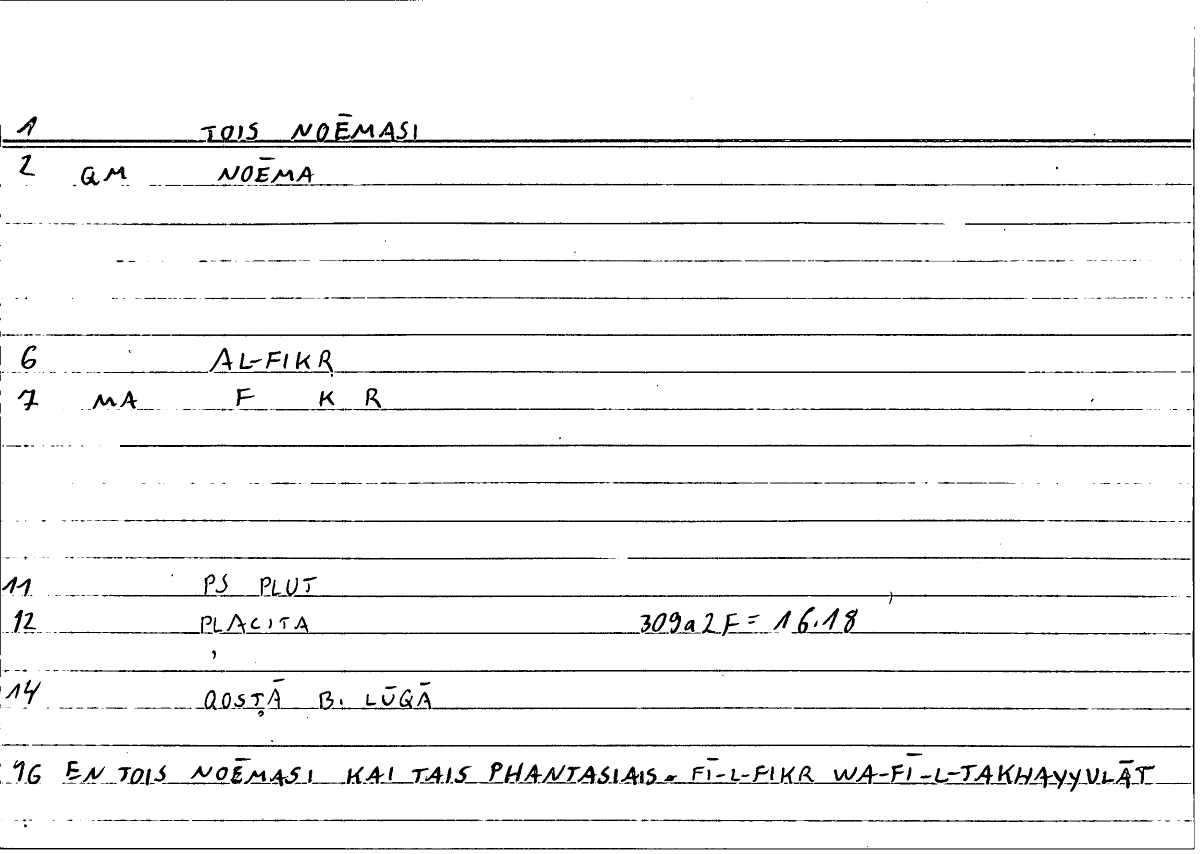 1 TOIS NOĒMASI
2 QM NOĒMA
6 AL-FIKR
7 MA F K R
11 PS PLUT
12 PLACITA 309a2F = 16.18
14 QOSṬĀ B. LŪQĀ
16 EN TOIS NOĒMASI KAI TAIS PHANTASIAIS = FĪ-L-FIKR WA-FĪ-L-TAKHAYYULĀT